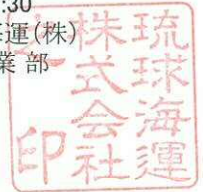 :30
運(株)
業 部
琉球海運
株式会社
印